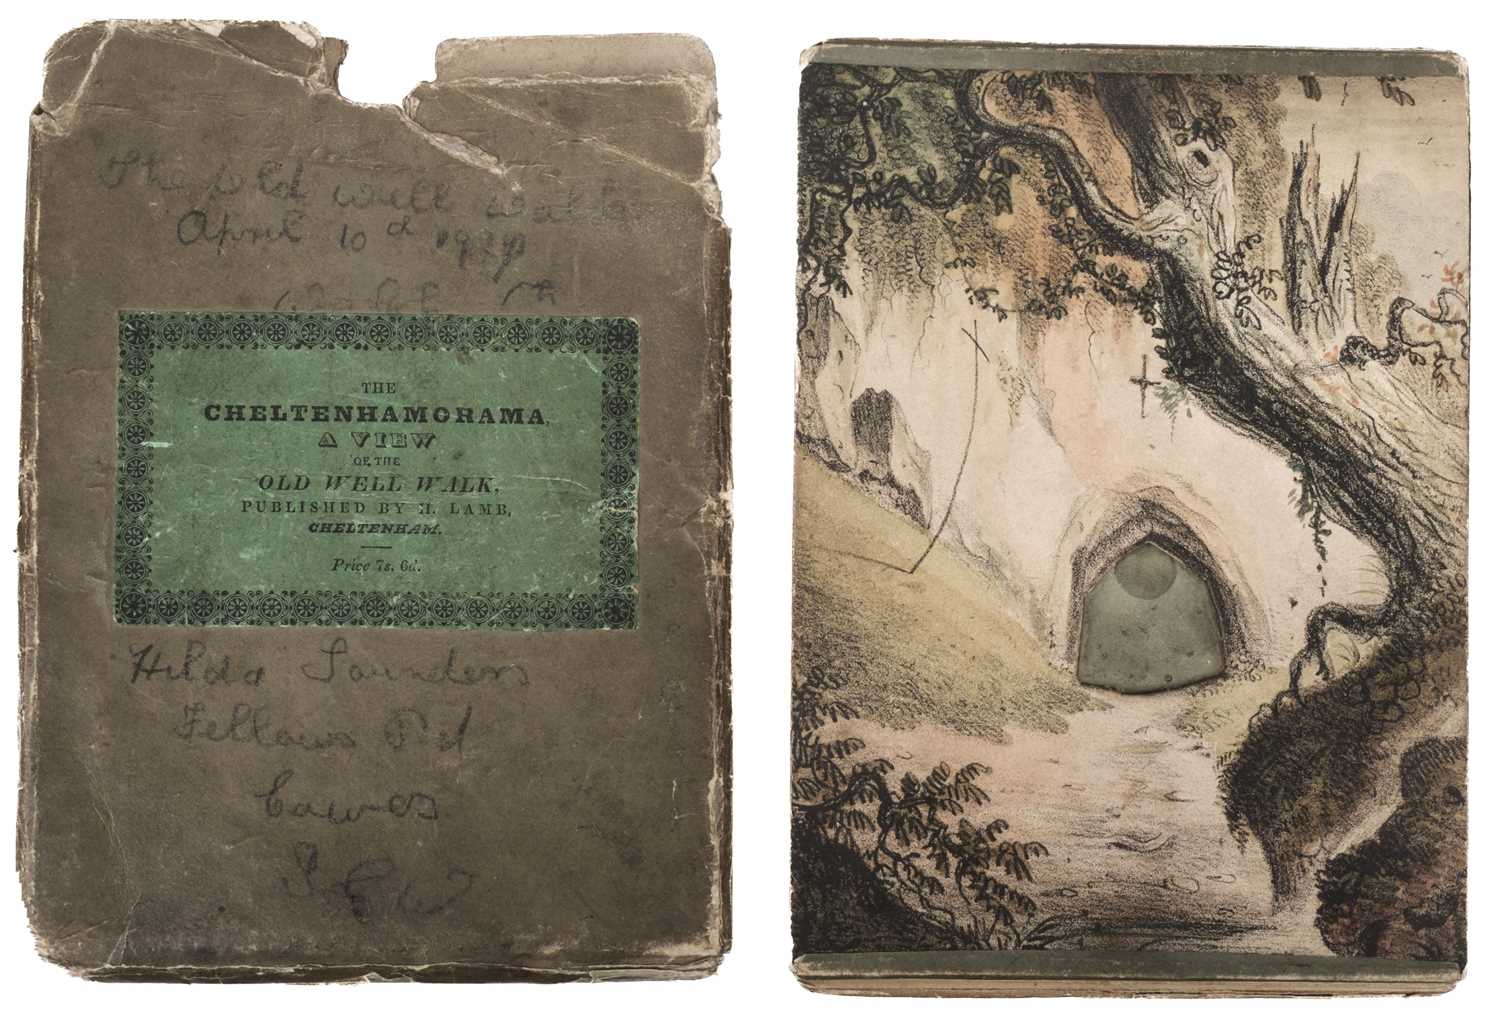 The old well walk
April 10th
THE
CHELTENHAMORAMA,
A VIEW
OF THE
OLD WELL WALK,
PUBLISHED BY H. LAMB,
CHELTENHAM.
Price 7s. 6d.
Hilda Saunders
Fellows Rd
Cowes